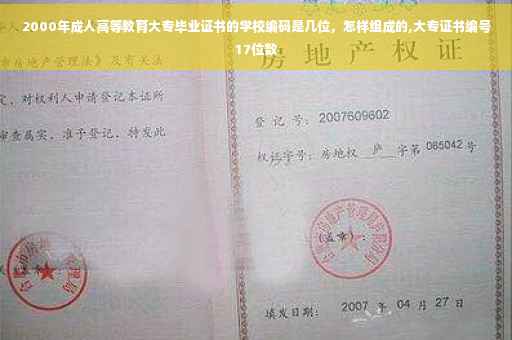 2000年成人高等教育大专毕业证书的学校编码是几位，怎样组成的,大专证书编号
17位数
房地产权证
市房地产管理法》及有关法
定，对权利人申请登记本证所
审查属实，准予登记，特发此
登记号：2007609602
权证字号：房地权 庐 字第 065042 号
（盖章）：
填发日期： 2007 年 04 月 27 日